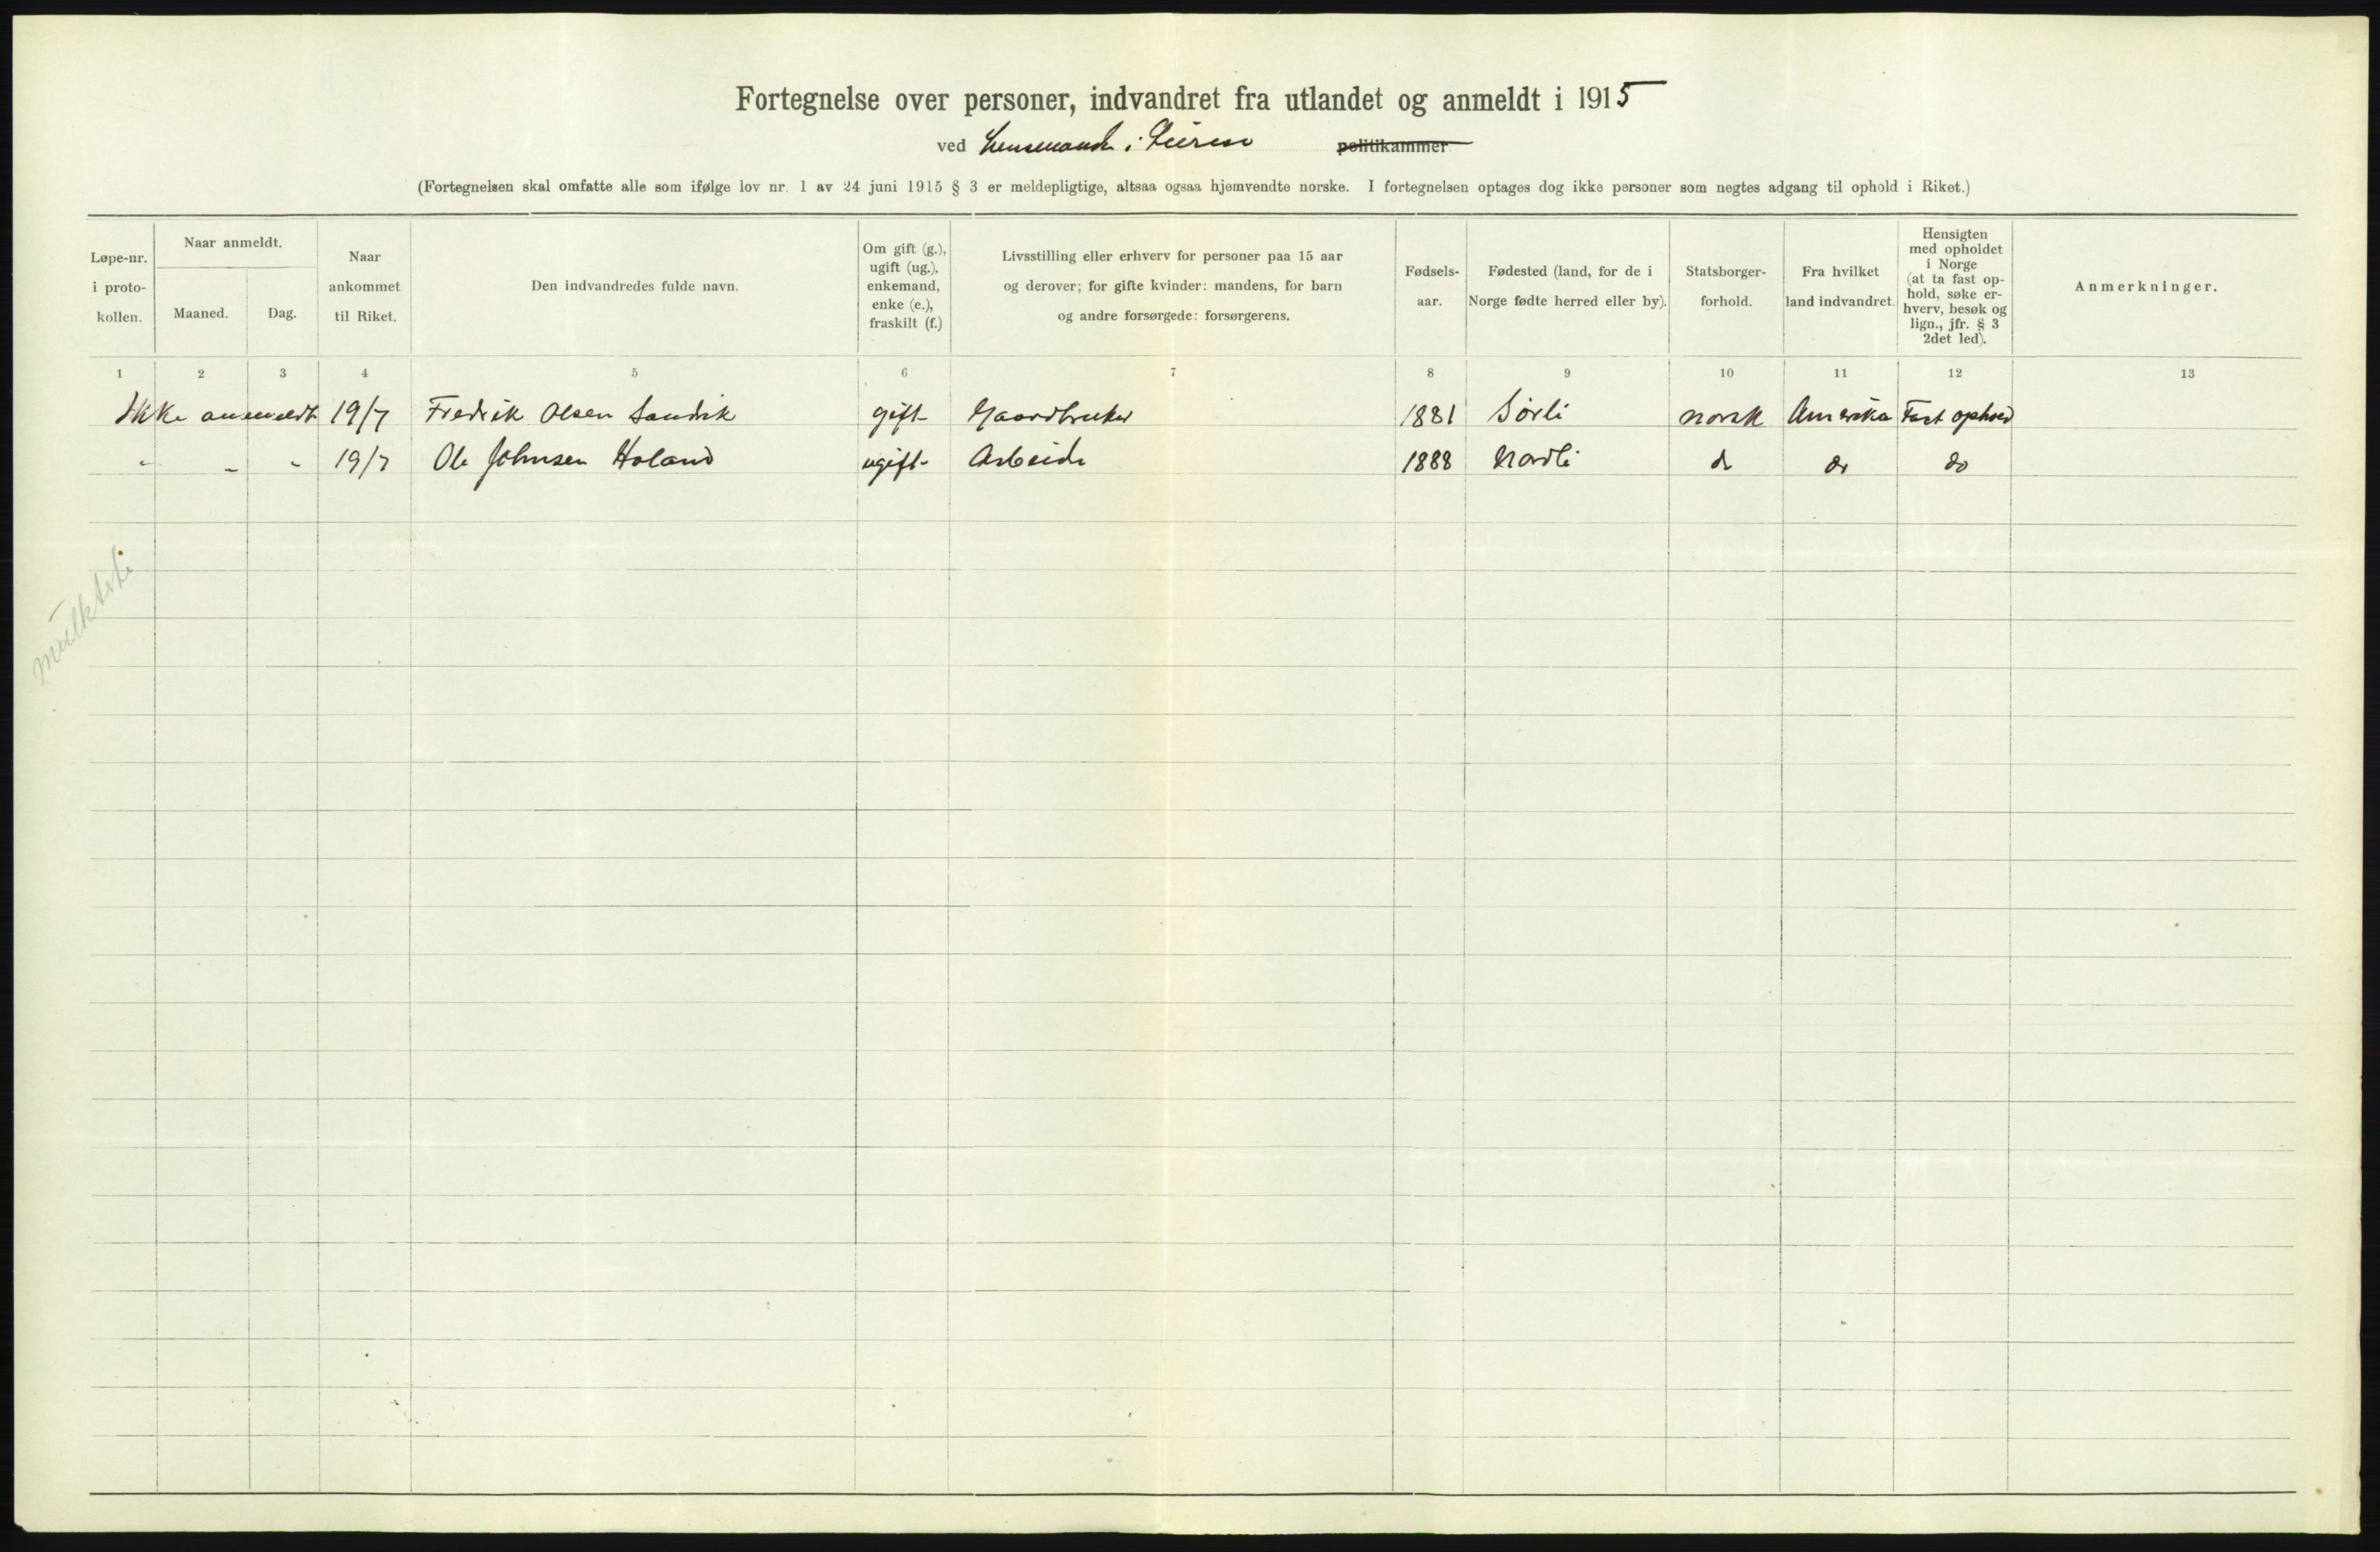 Fortegnelse over personer, indvandret fra utlandet og anmeldt i 1915
ved Lensmanden i Lierne politikammer
(Fortegnelsen skal omfatte alle som ifølge lov nr. 1 av 24 juni 1915 § 3 er meldepligtige, altsaa ogsaa hjemvendte norske. I fortegnelsen optages dog ikke personer som negtes adgang til ophold i Riket.)
Løpe-nr. i proto- kollen.
Naar anmeldt.
Maaned. Dag.
Naar ankommet til Riket.
Den indvandredes fulde navn.
Om gift (g.), ugift (ug.), enkemand, enke (e.), fraskilt (f.)
Livsstilling eller erhverv for personer paa 15 aar
og derover; for gifte kvinder: mandens, for barn
og andre forsørgede: forsørgerens.
Fødsels- aar.
Fødested (land, for de i
Norge fødte herred eller by).
Statsborger- forhold.
Fra hvilket land indvandret.
Hensigten med opholdet i Norge (at ta fast op- hold, søke er- hverv, besøk og lign., jfr. § 3 2det led).
Anmerkninger.
1 2 3 4 5 6 7 8 9 10 11 12 13
Ikke anmeldt 19/7 Fredrik Olsen Sandvik gift Gaardbruker 1881 Sørli norsk Amerika Fast ophold
" " " 19/7 Ole Johnsen Holand ugift Arbeide 1888 Nordli do do do